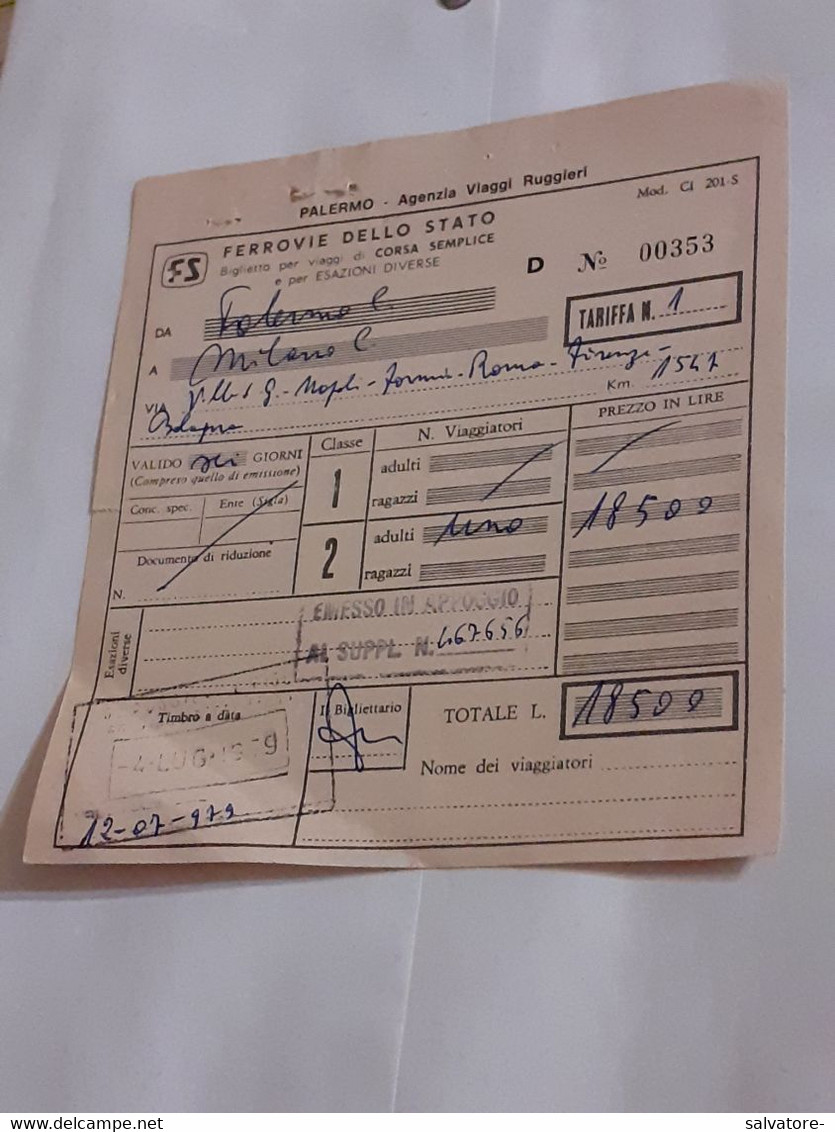 PALERMO - Agenzia Viaggi Ruggieri
Mod. CI 201-S
FS
FERROVIE DELLO STATO
Biglietto per viaggi di CORSA SEMPLICE
e per ESAZIONI DIVERSE
D No 00353
DA Palermo C.
TARIFFA N. 1
A Milano C.
VIA Villa S G - Napoli - Formia - Roma - Firenze -
Bologna
Km. 1547
VALIDO sei GIORNI
(Compreso quello di emissione)
Classe
N. Viaggiatori
PREZZO IN LIRE
Conc. spec.
Ente (Sigla)
1
adulti
ragazzi
Documento di riduzione
N.
2
adulti uno
18500
ragazzi
Esazioni
diverse
EMESSO IN APPOGGIO
AL SUPPL. N. 467656
Timbro a data
-4 LUG 1979
12-07-979
Il Bigliettario
TOTALE L. 18500
Nome dei viaggiatori
salvatore-